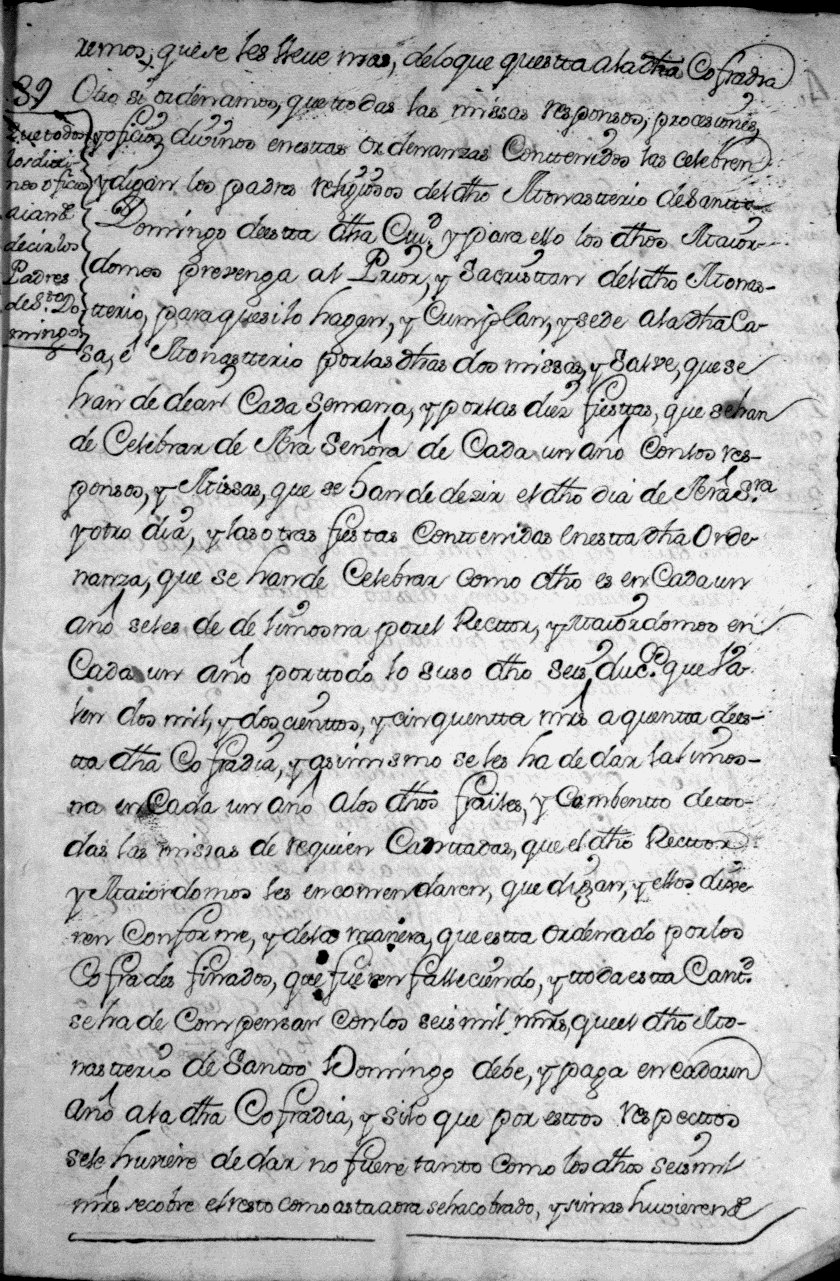 remos, que se les lleve mas, de lo que questta a la dha Cofradia
39
Otro si ordenamos, que ttodas las missas responsos, procasiones,
Que todos
los divi-
nos oficios
aian de
decir los
Padres
de Sto. Do
mingo
y oficios divinos en esttas ordenanzas Conttenidos las celebren
y digan los padres religiosos del dho Monastterio de Santto
Domingo de estta dha Ciud. y para ello los dhos Maior-
domos prevenga al Prior, y Sacristtan del dho Monas-
tterio, para que si lo hagan, y Cumplan, y se de a la dha Ca-
sa, e Monastterio por las dhas dos missas, y Salve, que se
han de dean Cada Semana, y por las diez fiesttas, que se han
de Celebrar de Nra Señora de Cada un año Con los res-
ponsos, y Missas, que se han de dezir el dho dia de Nra Sra.
y otro dia, y las otras fiestas Conttenidas en estta dha Orde-
nanza, que se han de Celebrar como dho es en Cada un
año se les de de limosna por el Recttor, y Maiordomos en
Cada un año por ttodo lo suso dho seis ducos. que Va-
len dos mil, y doscienttos, y cinquentta mrs a quentta de es-
tta dha Cofradia, y asimismo se les ha de dar la limos-
na en Cada un año a los dhos frailes, y Combentto de tto-
das las missas de requien Canttadas, que el dho Recttor
y Maiordomos les encomendaren, que digan, y ellos dixe-
ren Conforme, y de la manera, que estta ordenado por los
Cofrades finados, que fueren falleciendo, y ttoda estta Cantd.
se ha de Compensar Con los seis mil mrs, que el dho Mo-
nastterio de Santto Domingo debe, y paga en cada un
año a la dha Cofradia, y si lo que por esttos respecttos
se le huviere de dar no fuere tanto Como los dhos seis mil
mrs se cobre el resto como asta aora se ha cobrado, y si mas huvieren de